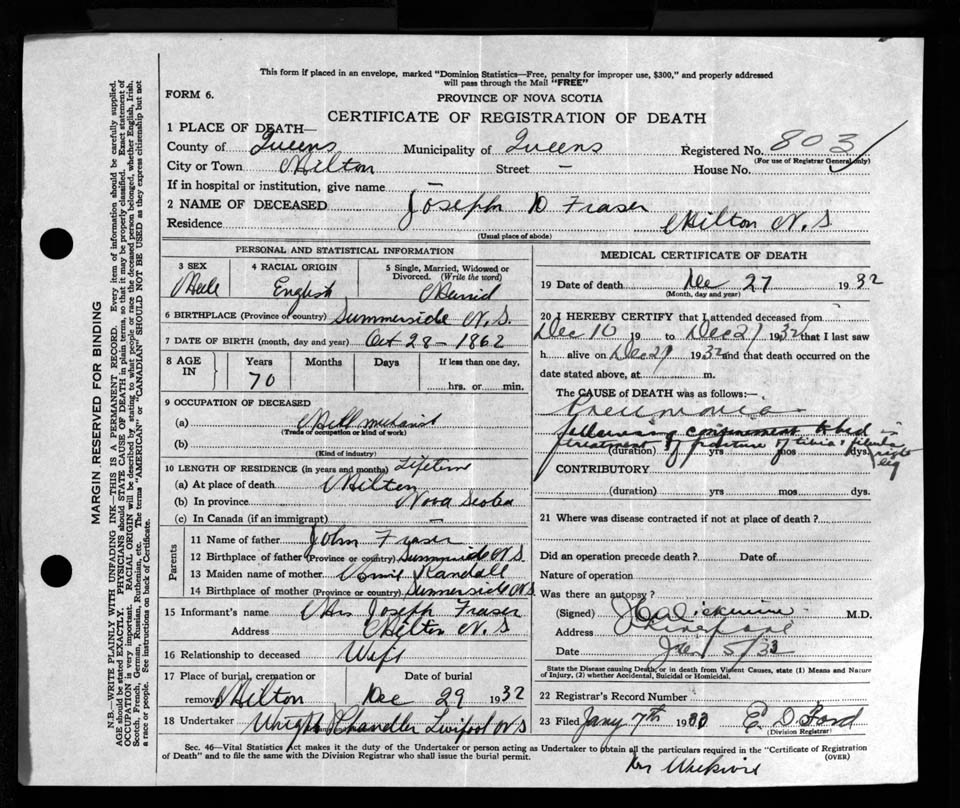 This form if placed in an envelope, marked "Dominion Statistics—Free, penalty for improper use, $300," and properly addressed
will pass through the Mail "FREE"
FORM 6.
PROVINCE OF NOVA SCOTIA
CERTIFICATE OF REGISTRATION OF DEATH
1 PLACE OF DEATH—
County of Queens Municipality of Queens Registered No. 803
(For use of Registrar General only)
City or Town Milton Street – House No.
If in hospital or institution, give name –
2 NAME OF DECEASED Joseph D Fraser
Residence Milton N.S
(Usual place of abode)
PERSONAL AND STATISTICAL INFORMATION
3 SEX 4 RACIAL ORIGIN 5 Single, Married, Widowed or Divorced. (Write the word)
Male English Married
6 BIRTHPLACE (Province or country) Summerside N.S.
7 DATE OF BIRTH (month, day and year) Oct 28 - 1862
8 AGE IN Years Months Days If less than one day,
70 hrs. or min.
9 OCCUPATION OF DECEASED
(a) Mill
(Trade or occupation or kind of work)
(b)
(Kind of industry)
10 LENGTH OF RESIDENCE (in years and months) Lifetime
(a) At place of death Milton
(b) In province Nova Scotia
(c) In Canada (if an immigrant) –
Parents
11 Name of father John Fraser
12 Birthplace of father (Province or country) Summerside N.S.
13 Maiden name of mother Randall
14 Birthplace of mother (Province or country) Summerside N.S.
15 Informant's name Mrs Joseph Fraser
Address Milton N.S
16 Relationship to deceased Wife
17 Place of burial, cremation or removal Date of burial
Milton Dec 29 1932
18 Undertaker Wright Chandler Liverpool N S
MEDICAL CERTIFICATE OF DEATH
19 Date of death Dec 27 1932
(Month, day and year)
20 I HEREBY CERTIFY that I attended deceased from
Dec 10 19 to Dec 27 1932 that I last saw
h alive on Dec 27 1932 and that death occurred on
date stated above, at m.
The CAUSE OF DEATH was as follows:—
Pneumonia
following confinement to bed in
treatment of fracture of tibia & fibula
right leg
(duration) yrs mos dys.
CONTRIBUTORY
(duration) yrs mos dys.
21 Where was disease contracted if not at place of death?
Did an operation precede death? Date of
Nature of operation
Was there an autopsy?
(Signed) M.D.
Address Liverpool
Date Jan 5/33
State the Disease causing Death, or in death from Violent Causes, state (1) Means and Nature
of Injury, (2) whether Accidental, Suicidal or Homicidal.
22 Registrar's Record Number
23 Filed Jany 7th 1933 E. D. Ford
(Division Registrar)
Sec. 46—Vital Statistics Act makes it the duty of the Undertaker or person acting as Undertaker to obtain all the particulars required in the "Certificate of Registration
of Death" and to file the same with the Division Registrar who shall issue the burial permit.
(OVER)
MARGIN RESERVED FOR BINDING
N.B.—WRITE PLAINLY WITH UNFADING INK—THIS IS A PERMANENT RECORD. Every item of information should be carefully supplied.
AGE should be stated EXACTLY. PHYSICIANS should STATE CAUSE OF DEATH in plain terms, so that it may be properly classified. Exact statement of
OCCUPATION is very important. RACIAL ORIGIN will be described by stating to what people or race the deceased person belonged, whether English, Irish,
Scotch, French, German, Russian, Ruthenian, etc. The terms "AMERICAN" or "CANADIAN" SHOULD NOT BE USED as they express citizenship but not
a race or people. See instructions on back of Certificate.